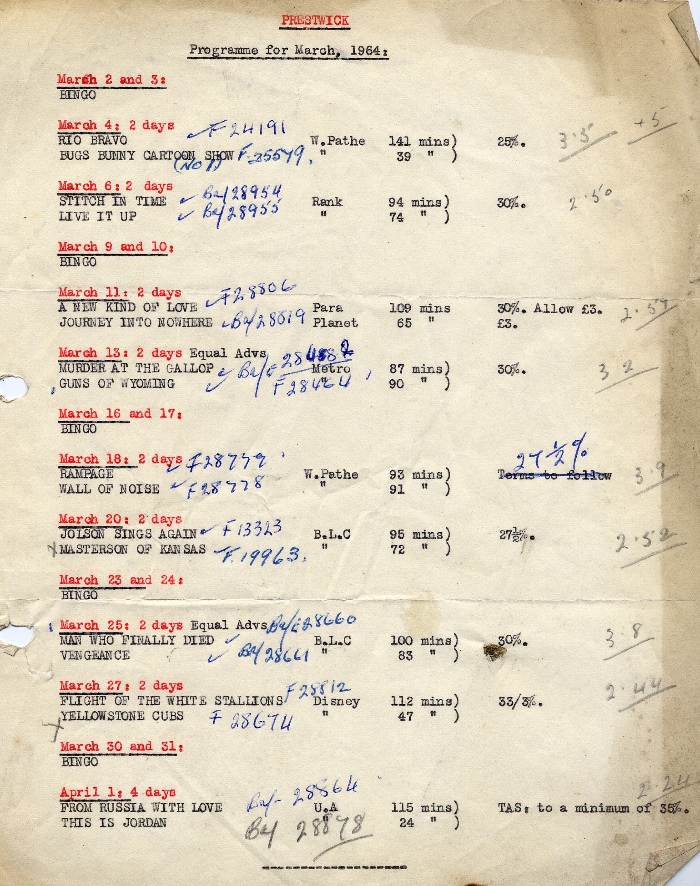 PRESTWICK
Programme for March, 1964:
March 2 and 3:
BINGO
March 4: 2 days F 24191
RIO BRAVO W.Pathe 141 mins) 25%. 3·5 +5
BUGS BUNNY CARTOON SHOW F-25579. " 39 " )
(NO 1)
March 6: 2 days Br/28954
STITCH IN TIME Rank 94 mins) 30%. 2·50
LIVE IT UP Br/28955 " 74 " )
March 9 and 10:
BINGO
March 11: 2 days F28806
A NEW KIND OF LOVE Para 109 mins 30%. Allow £3. 2·57
JOURNEY INTO NOWHERE Br/28819 Planet 65 " £3.
March 13: 2 days Equal Advs
MURDER AT THE GALLOP Metro 87 mins) 30%. 3 2
GUNS OF WYOMING F28464 " 90 " )
March 16 and 17:
BINGO
March 18: 2 days F28779 27½%
RAMPAGE W.Pathe 93 mins) Terms to follow 3·9
WALL OF NOISE F28778 " 91 " )
March 20: 2 days
JOLSON SINGS AGAIN F13323 B.L.C 95 mins) 27½%.
MASTERSON OF KANSAS F.19963. " 72 " ) 2·52
March 23 and 24:
BINGO
March 25: 2 days Equal Advs Br/E28660
MAN WHO FINALLY DIED B.L.C 100 mins) 30%. 3·8
VENGEANCE Br/28661 " 83 " )
March 27: 2 days F28812
FLIGHT OF THE WHITE STALLIONS Disney 112 mins) 33/3%. 2·44
YELLOWSTONE CUBS F 28674 " 47 " )
March 30 and 31:
BINGO
April 1: 4 days Br/- 28864 2·24
FROM RUSSIA WITH LOVE U.A 115 mins) TAS: to a minimum of 35%.
THIS IS JORDAN Br/ 28878 " 24 " )